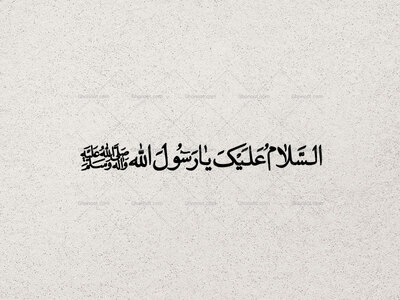 السَّلامُ عَلَیْکَ یا رَسُولَ الله صَلَّى اللهُ عَلَيْهِ وَآلِهِ وَسَلَّمَ